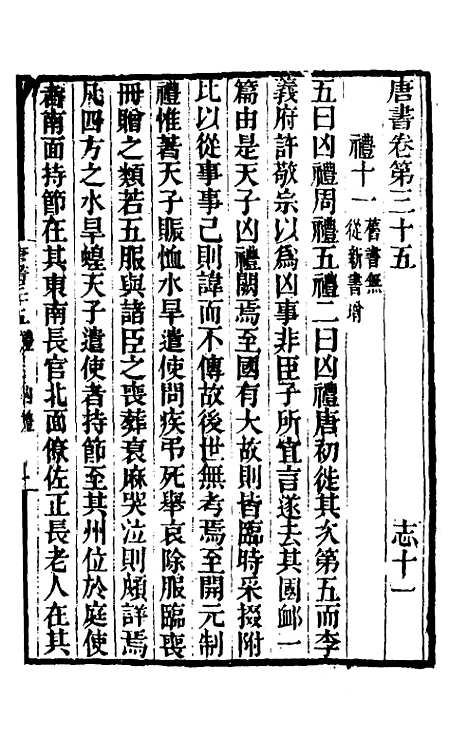 唐書卷第三十五　　　　　　志十一
禮十一　舊書無
從新書增
五曰凶禮周禮五禮二曰凶禮唐初徙其次第五而李
義府許敬宗以爲凶事非臣子所宜言遂去其國䘏一
篇由是天子凶禮闕焉至國有大故則皆臨時采掇附
比以從事事已則諱而不傳故後世無考焉至開元制
禮惟著天子賑恤水旱遣使問疾弔死舉哀除服臨喪
冊贈之類若五服與諸臣之喪葬衰麻哭泣則頗詳焉
凡四方之水旱蝗天子遣使者持節至其州位於庭使
者南面持節在其東南長官北面僚佐正長老人在其